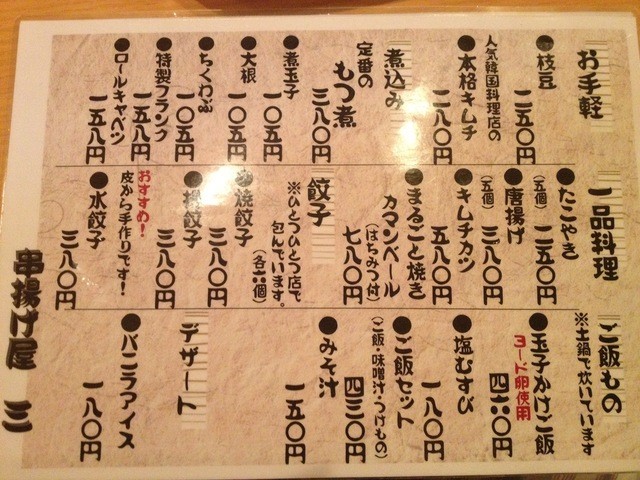 お手軽
●枝豆
二五〇円
人気韓国料理店の
●本格キムチ
二八〇円
煮込み
定番の
もつ煮
三八〇円
●煮玉子
一〇五円
●大根
一〇五円
●ちくわぶ
一〇五円
●特製フランク
一五八円
●ロールキャベツ
一五八円
一品料理
●たこやき
(五個)
二五〇円
●唐揚げ
(五個)
三八〇円
●キムチカツ
五八〇円
●まるごと焼き
カマンベール
(はちみつ付)
七八〇円
餃子
※ひとつひとつ店で
包んでいます。
(各六個)
●焼餃子
三八〇円
●揚餃子
三八〇円
おすすめ!
皮から手作りです!
●水餃子
三八〇円
ご飯もの
※土鍋で炊いています
●玉子かけご飯
ヨード卵使用
四六〇円
●塩むすび
一八〇円
●ご飯セット
(ご飯・味噌汁・つけもの)
四三〇円
●みそ汁
一五〇円
デザート
●バニラアイス
一八〇円
串揚げ屋 三